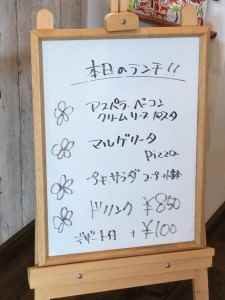 本日のランチ!!
アスパラ・ベーコン
クリームソースパスタ
マルゲリータ
Pizza
プチサラダ コーヒー
ドリンク ¥850
デザート付 + ¥100